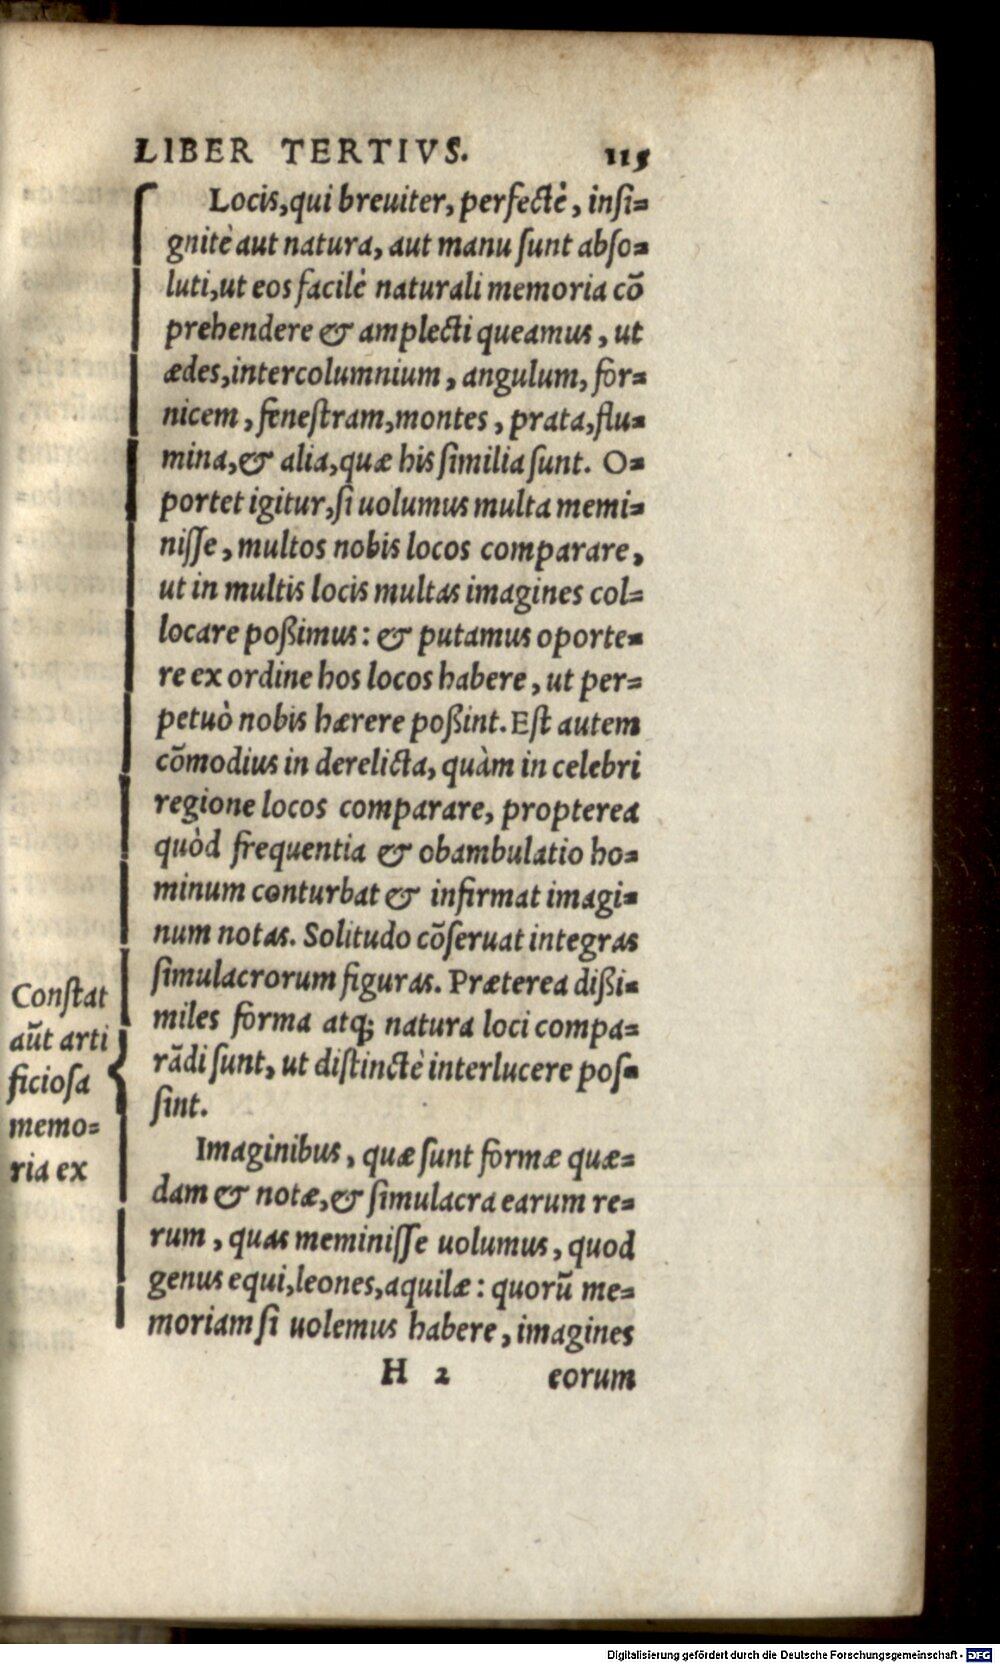 LIBER TERTIVS. 115
Locis, qui breuiter, perfectè, insi=
gnitè aut natura, aut manu sunt abso=
luti, ut eos facilè naturali memoria cõ
prehendere & amplecti queamus, ut
ædes, intercolumnium, angulum, for=
nicem, fenestram, montes, prata, flu=
mina, & alia, quæ his similia sunt. O=
portet igitur, si uolumus multa memi=
nisse, multos nobis locos comparare,
ut in multis locis multas imagines col=
locare poßimus: & putamus oporte=
re ex ordine hos locos habere, ut per=
petuò nobis hærere poßint. Est autem
cõmodius in derelicta, quàm in celebri
regione locos comparare, propterea
quòd frequentia & obambulatio ho=
minum conturbat & infirmat imagi=
num notas. Solitudo cõseruat integras
simulacrorum figuras. Præterea dißi=
miles forma atq; natura loci compa=
rãdi sunt, ut distinctè interlucere pos=
sint.
Constat
aũt arti
ficiosa
memo=
ria ex
Imaginibus, quæ sunt formæ quæ=
dam & notæ, & simulacra earum re=
rum, quas meminisse uolumus, quod
genus equi, leones, aquilæ: quorũ me=
moriam si uolemus habere, imagines
H 2 eorum
Digitalisierung gefördert durch die Deutsche Forschungsgemeinschaft - DFG